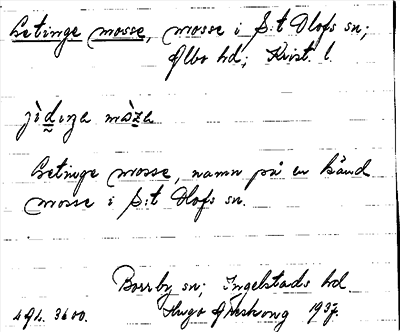 Getinge mosse, mosse i S:t Olofs sn;
Albo hd; Krist. l.
mosse
Getinge mosse, namn på en känd
mosse i S:t Olofs sn.
Borrby sn; Ingelstads hd
Hugo 193
3600.